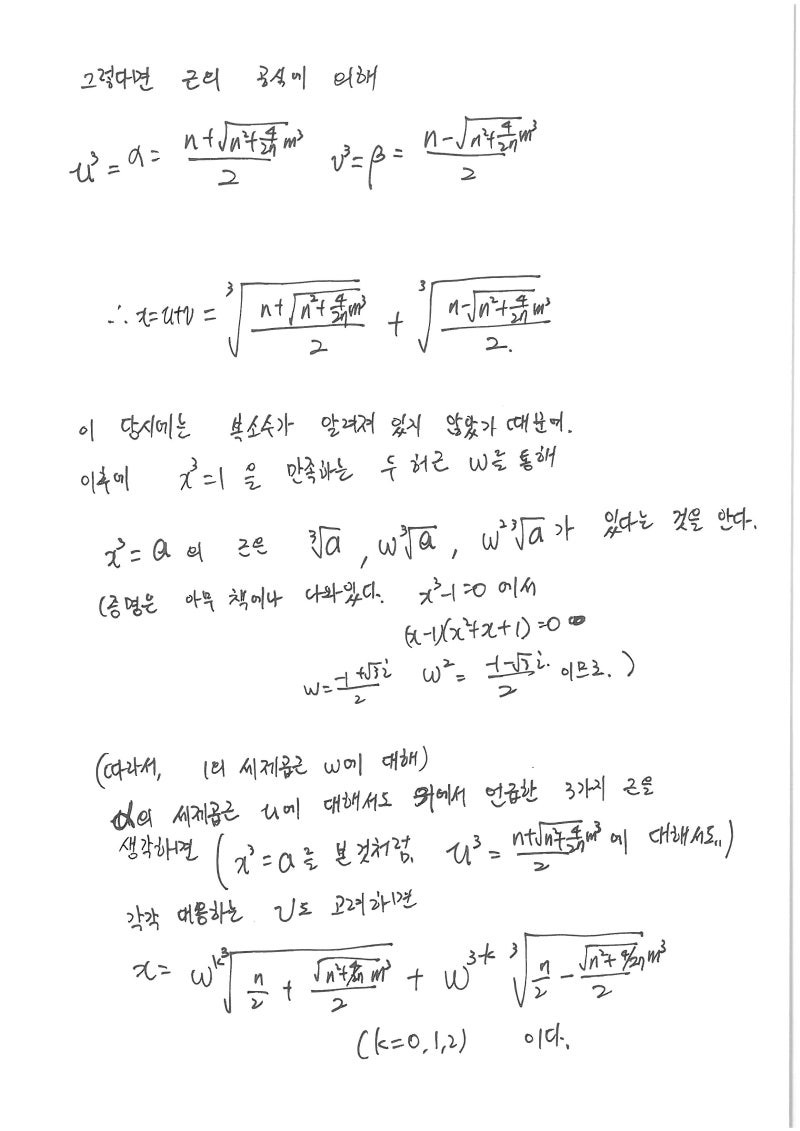 그렇다면 근의 공식에 의해
u³ = α = (n+√(n²+4/27 m³))/2 v³ = β = (n-√(n²+4/27 m³))/2
∴ x=u+v = ∛((n+√(n²+4/27 m³))/2) + ∛((n-√(n²+4/27 m³))/2).
이 당시에는 복소수가 알려져 있지 않았기 때문에.
이후에 x³=1 을 만족하는 두 허근 ω를 통해
x³=a 의 근은 ∛a, ω∛a, ω²∛a가 있다는 것을 안다.
(증명은 아무 책에나 나와있다. x³-1=0 에서
(x-1)(x²+x+1)=0
ω=(-1+√3i)/2 ω²=(-1-√3i)/2. 이므로.)
(따라서, 1의 세제곱근 ω에 대해)
α의 세제곱근 u에 대해서도 위에서 언급한 3가지 근을
생각하면 (x³=a를 본것처럼, u³=(n+√(n²+4/27 m³))/2 에 대해서도..)
각각 대응하는 v도 고려하면
x= ω^k ∛(n/2 + √(n²+4/27 m³)/2) + ω^(3-k) ∛(n/2 - √(n²+4/27 m³)/2)
(k=0,1,2) 이다.